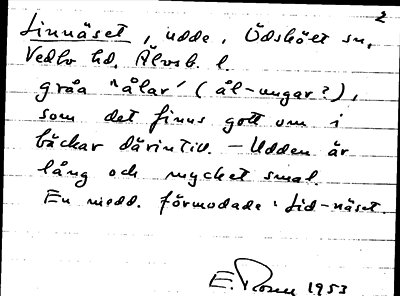 2
Linnäset, udde, Ödskölt sn,
Vedbo hd. Älvsb. l.
gråa "ålar" (ål-ungar?),
som det finns gott om i
bäckar därintill. – Udden är
lång och mycket smal.
En medd. förmodade: Lid-näset.
E. Rosen 1953